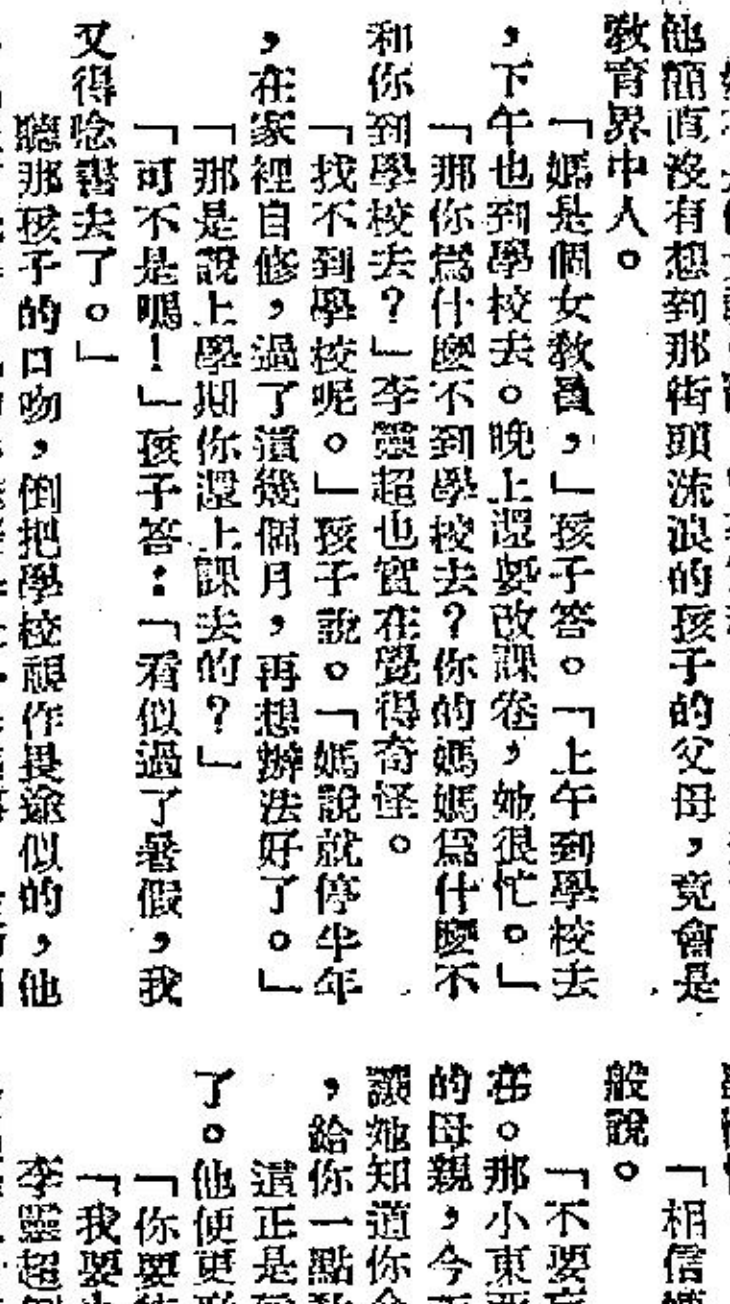 他簡直沒有想到那街頭流浪的孩子的父母，竟會是
敎育界中人。
「媽是個女敎員，」孩子答。「上午到學校去
，下午也到學校去。晚上還要改課卷，她很忙。」
「那你爲什麼不到學校去？你的媽媽爲什麼不
和你到學校去？」李靈超也實在覺得奇怪。
「找不到學校呢。」孩子說。「媽說就停半年
，在家裡自修，過了這幾個月，再想辦法好了。」
「那是說上學期你還上課去的？」
「可不是嗎！」孩子答：「看似過了暑假，我
又得唸書去了。」
聽那孩子的口吻，倒把學校視作畏途似的，他
「相信
般說。
「不要
在。那小東
的母親，今
讓她知道你
，給你一點
這正是
了。他便更
「你要
「我要
李靈超